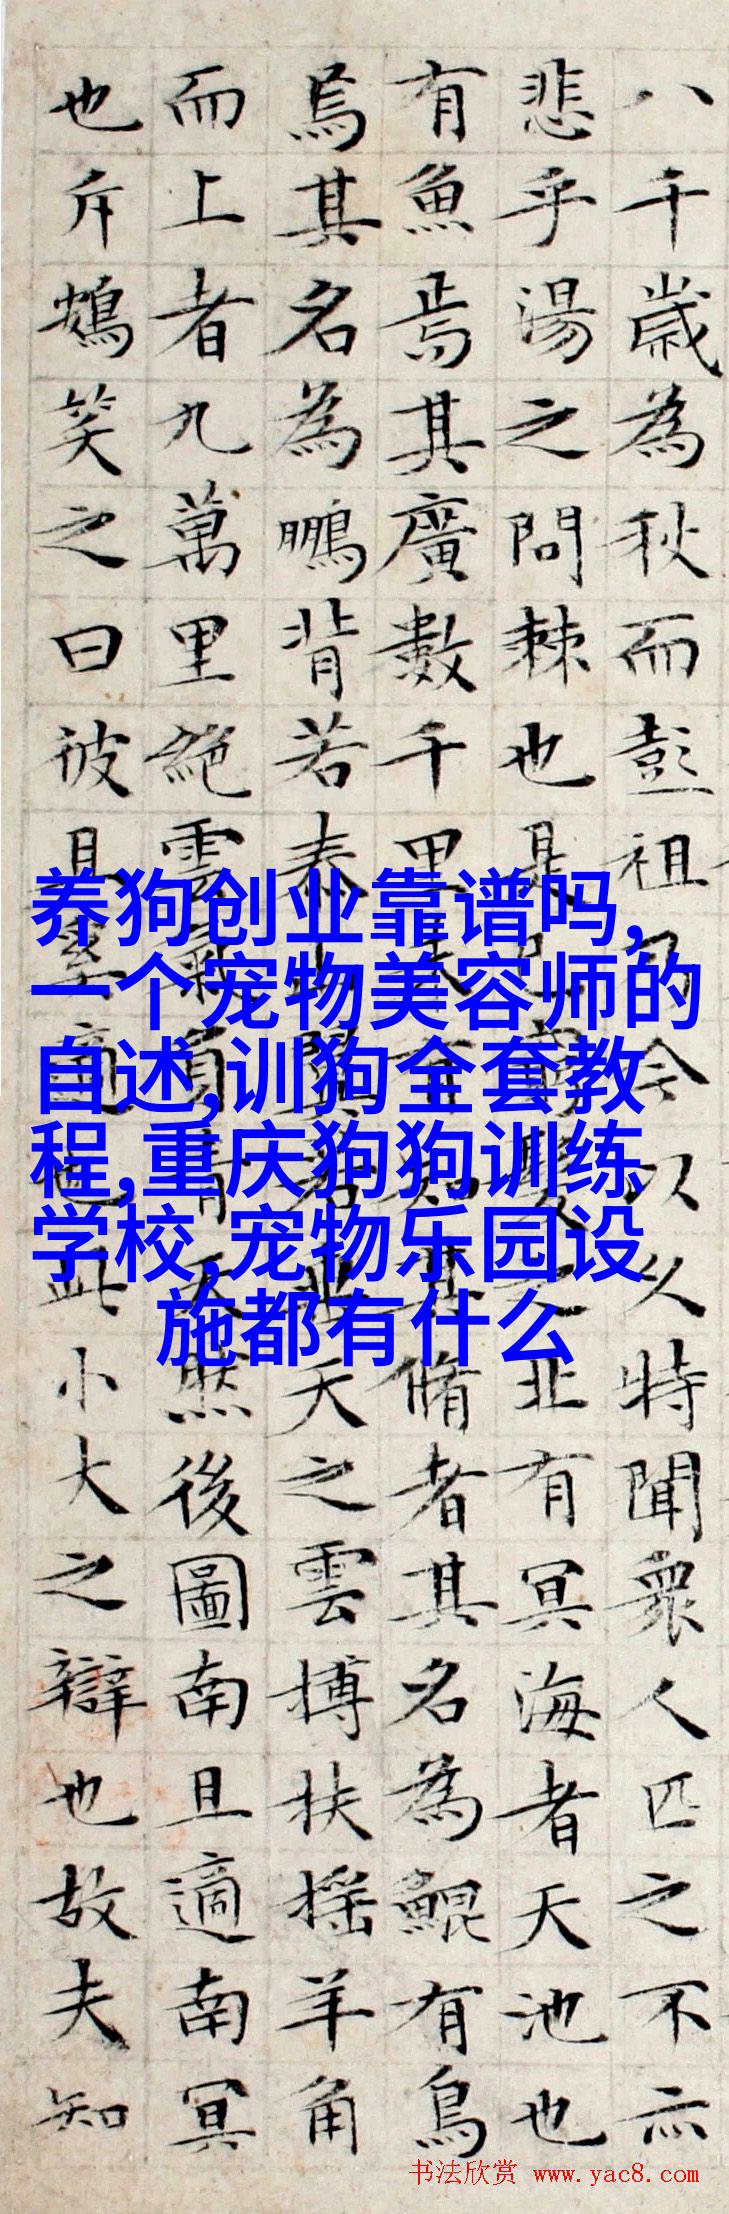 八千歲為秋而彭祖乃今以久特聞衆人匹之不亦
悲乎湯之問棘也是已窮髮之北有冥海者天池也
有魚焉其廣數千里未有知其脩者其名為鯤有鳥
焉其名為鵬背若泰山翼若垂天之雲搏扶搖羊角
而上者九萬里絕雲氣負青天然後圖南且適南冥
也斥鴳笑之曰彼且奚適也此小大之辯也故夫知
养狗创业靠谱吗,
一个宠物美容师的
自述,训狗全套教
程,重庆狗狗训练
学校,宠物乐园设
施都有什么
书法欣赏 www.yac8.com